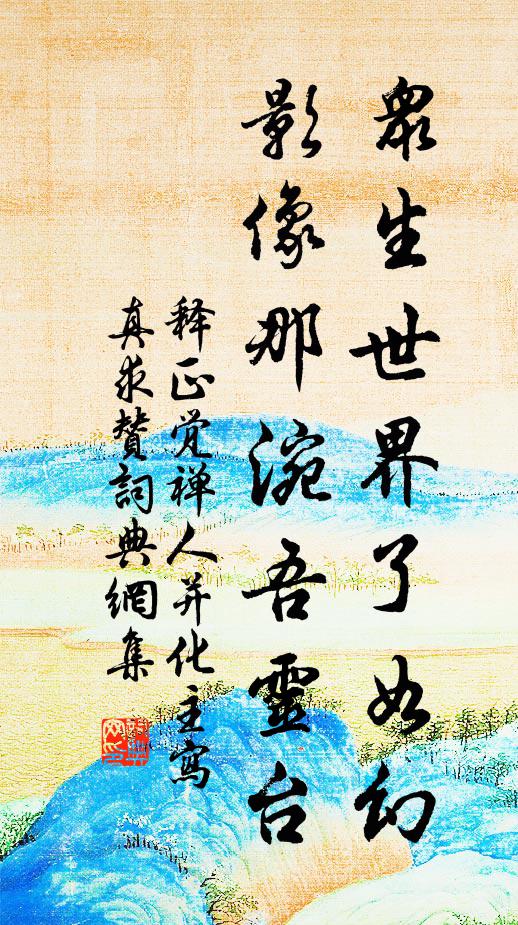 眾生世界了如幻
影像那涴吾靈台
释正觉禅人并化主寫
真求賛詞典網集